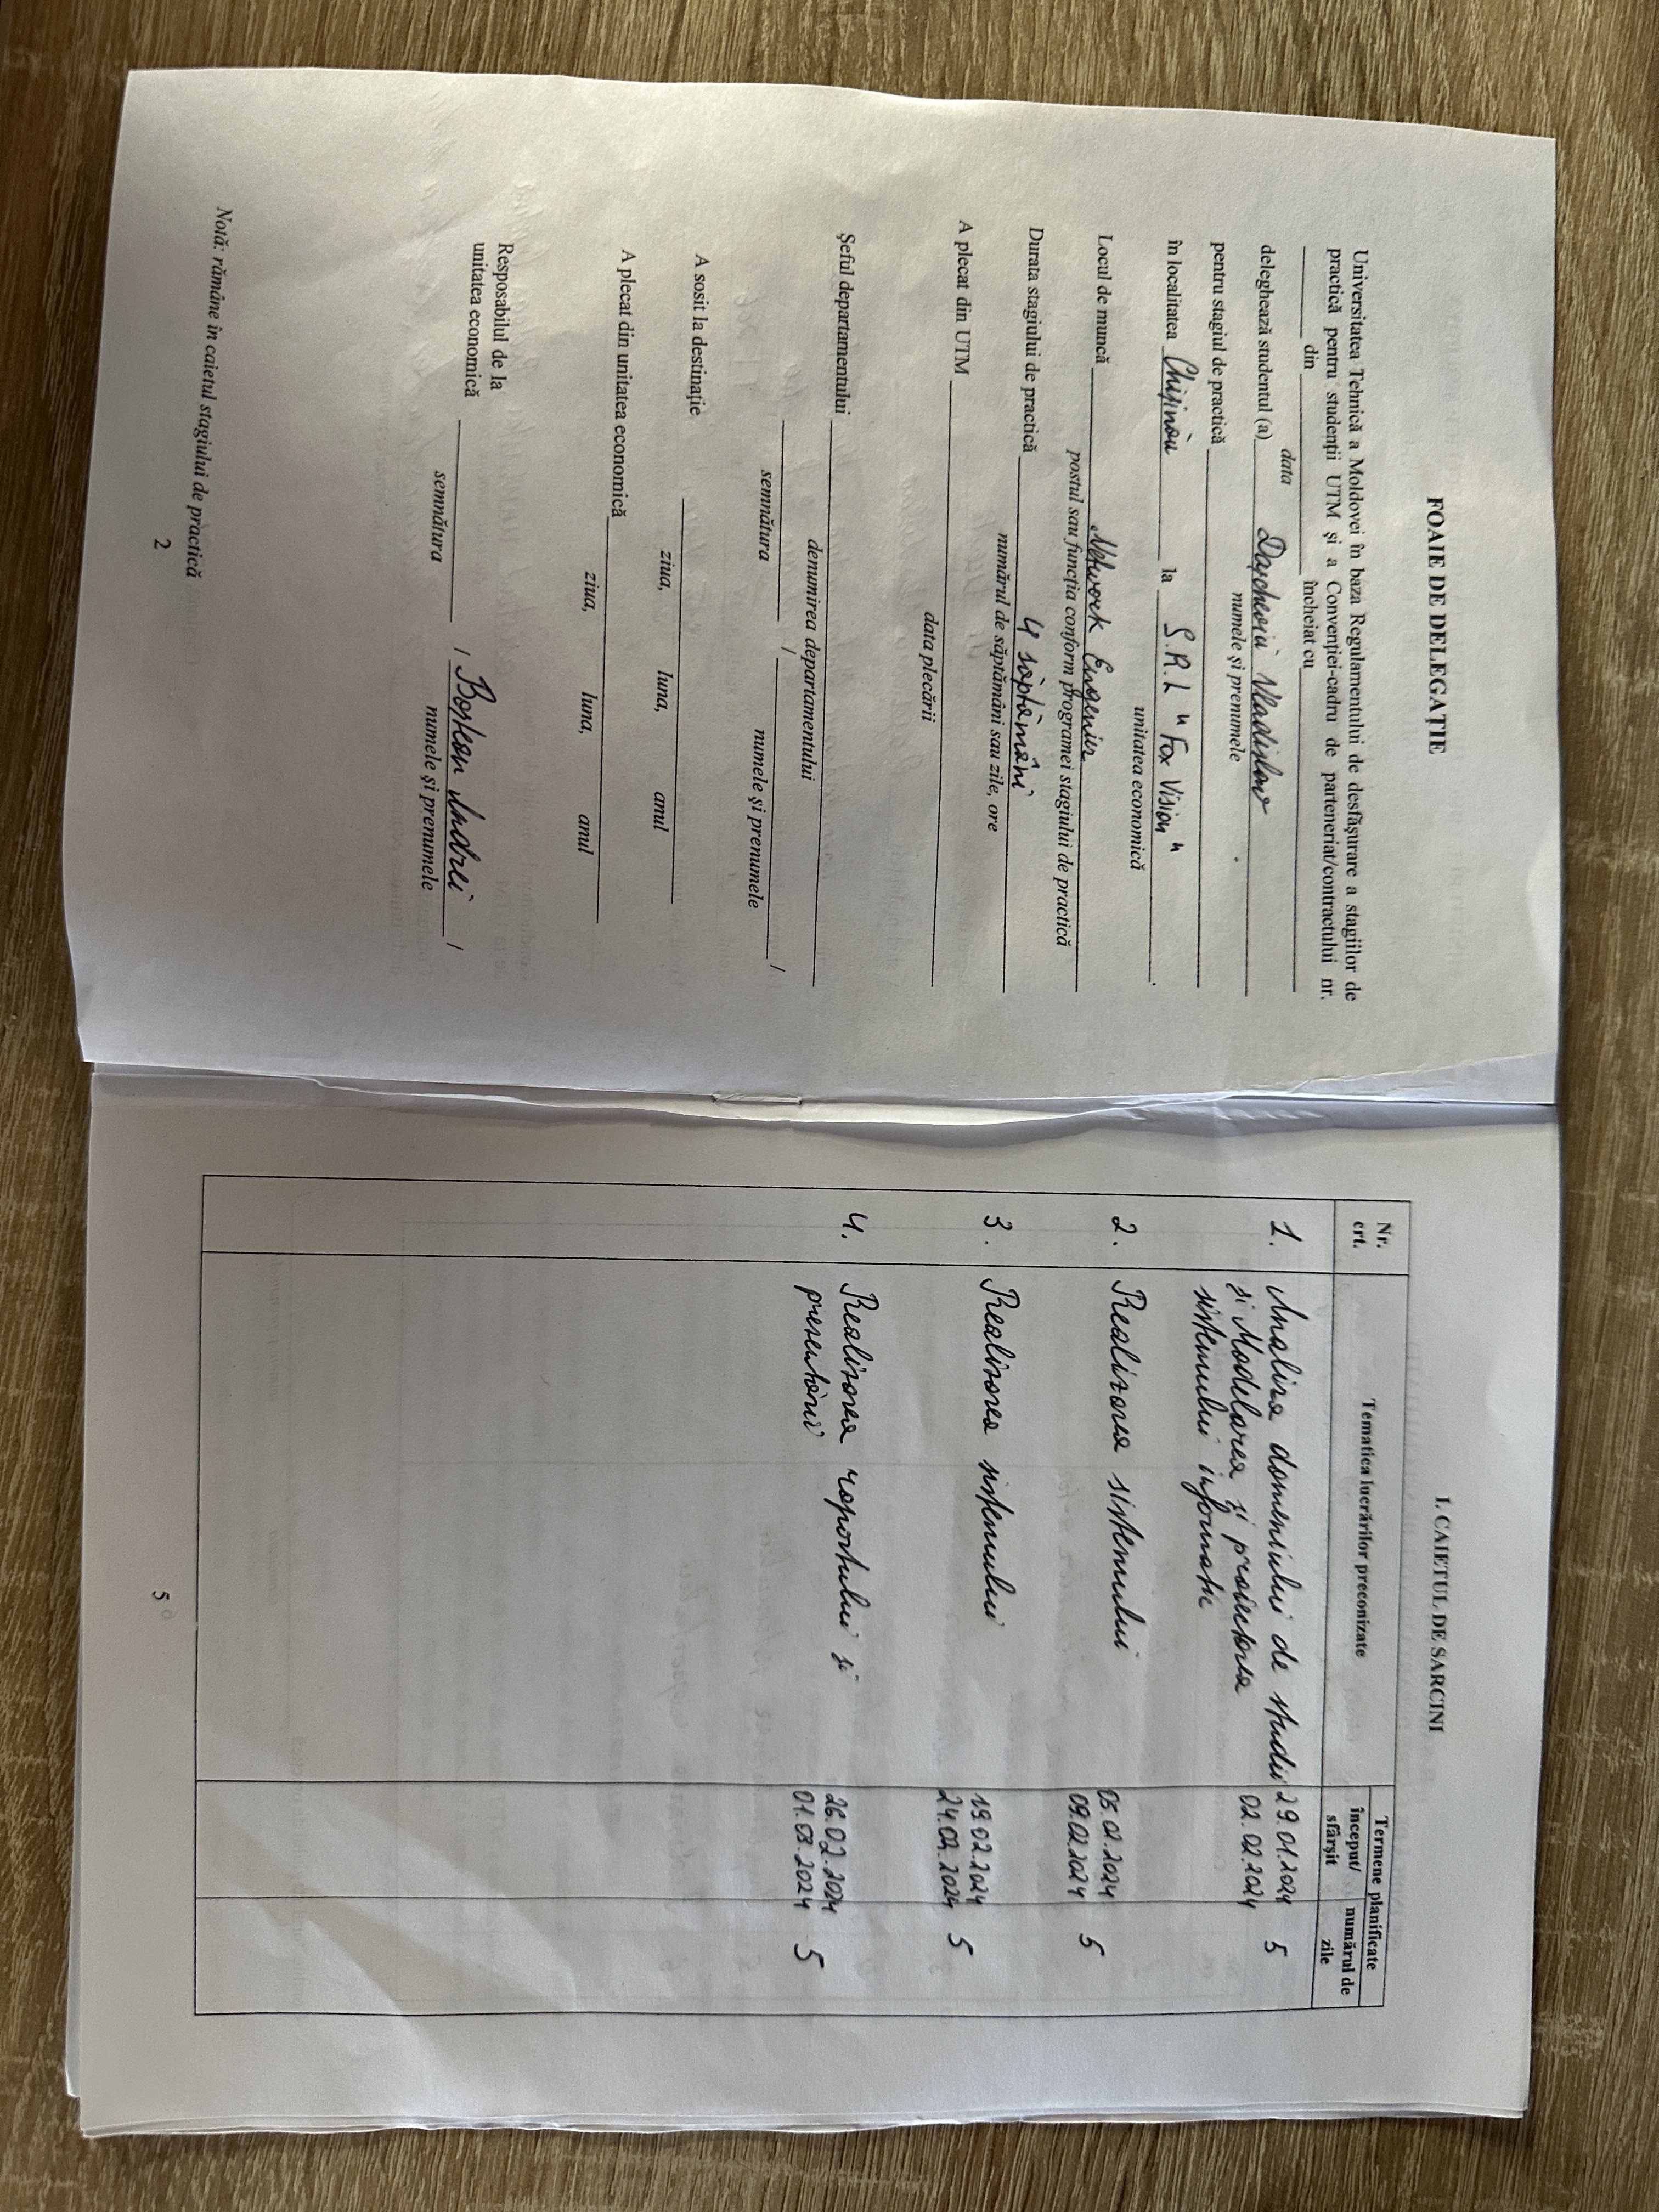 FOAIE DE DELEGAŢIE
Universitatea Tehnică a Moldovei în baza Regulamentului de desfăşurare a stagiilor de
practică pentru studenţii UTM şi a Convenţiei-cadru de parteneriat/contractului nr.
din încheiat cu
data
deleghează studentul (a) Vladislav
numele şi prenumele
pentru stagiul de practică
în localitatea Chişinău la S.R.L "Fox Vision"
unitatea economică
Locul de muncă Network Engenier
postul sau funcţia conform programei stagiului de practică
Durata stagiului de practică 4 săptămâni
numărul de săptămâni sau zile, ore
A plecat din UTM
data plecării
Şeful departamentului
denumirea departamentului
/ /
semnătura numele şi prenumele
A sosit la destinaţie
ziua, luna, anul
A plecat din unitatea economică
ziua, luna, anul
Resposabilul de la
unitatea economică / Boştean Andrei /
semnătura numele şi prenumele
Notă: rămâne în caietul stagiului de practică
2
I. CAIETUL DE SARCINI
Nr. crt. Tematica lucrărilor preconizate Termene planificate
început/ sfârşit numărul de zile
1. Analiza domeniului de studii 29.01.2024 5
şi Modelarea şi proiectarea 02.02.2024
sistemului informatic
2. Realizarea sistemului 05.02.2024
09.02.2024 5
3. Realizarea sistemului 19.02.2024
24.02.2024 5
4. Realizarea raportului şi 26.02.2024
prezentării 01.03.2024 5
5